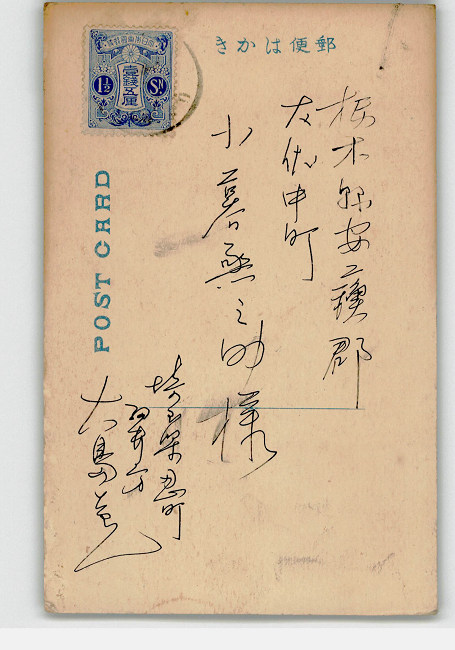 郵便はかき
大日本帝國郵便
壹錢五厘
1½ Sn
POST CARD
栃木縣安蘇郡
佐中町
小暮
之助様
埼玉県忍町
方
大島